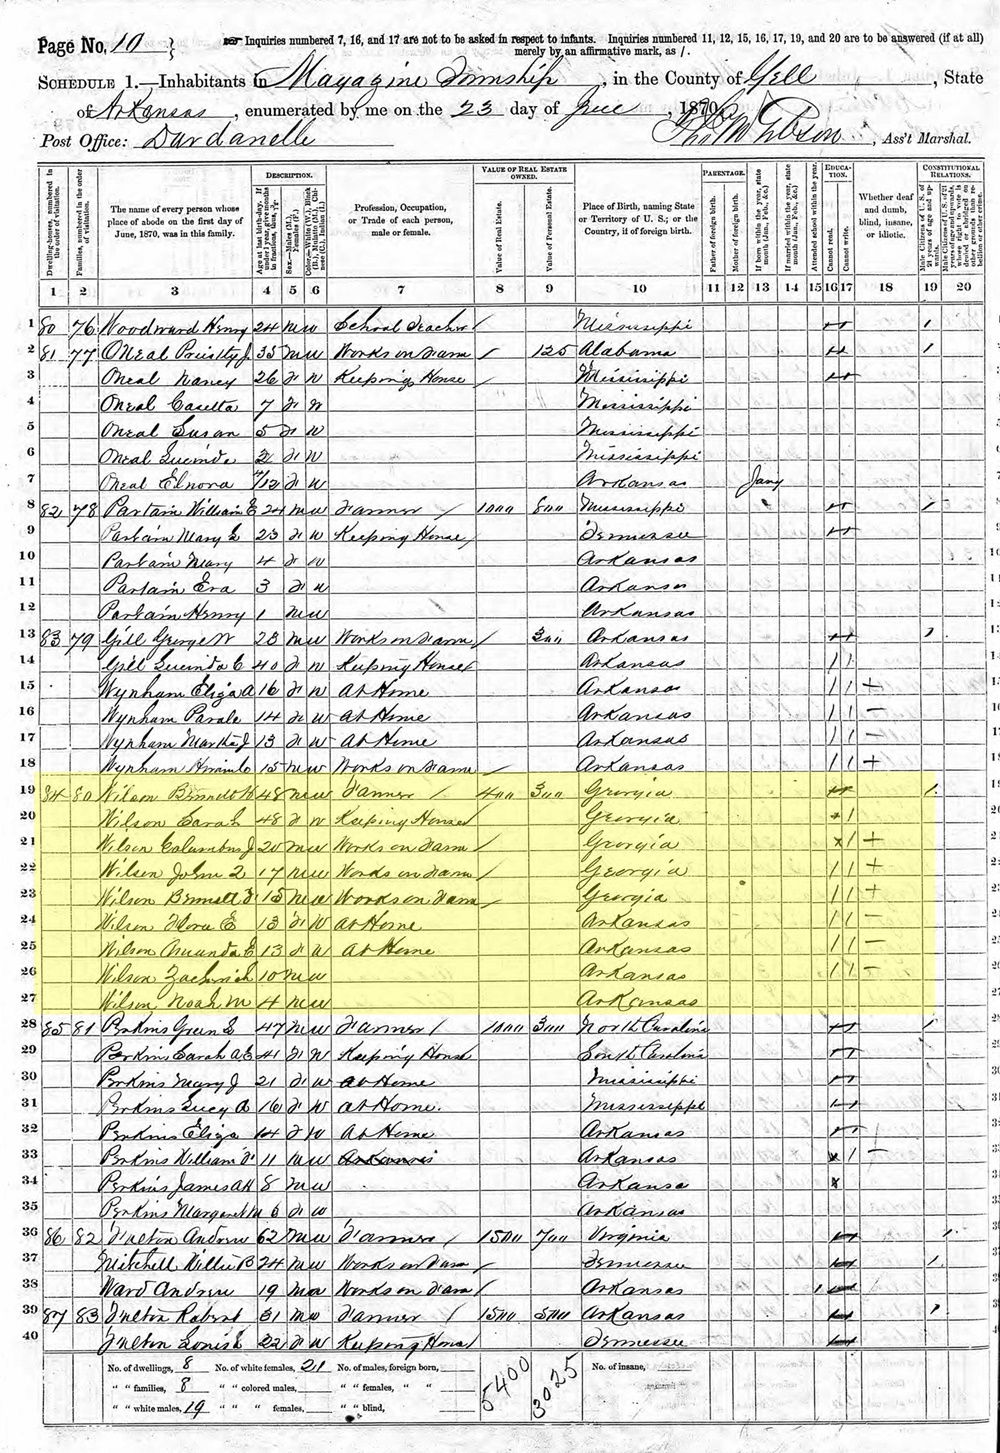 Page No. 10
Inquiries numbered 7, 16, and 17 are not to be asked in respect to infants. Inquiries numbered 11, 12, 15, 16, 17, 19, and 20 are to be answered (if at all)
merely by an affirmative mark, as /.
Schedule 1.—Inhabitants in Magazine Township, in the County of Yell, State
of Arkansas, enumerated by me on the 23 day of , 1870.
Post Office: Dardanelle Gibson, Ass't Marshal.
Dwelling-houses, numbered in the order of visitation.
Families, numbered in the order of visitation.
The name of every person whose place of abode on the first day of June, 1870, was in this family.
Description.
Age at last birth-day. If under 1 year, give months in fractions, thus,
Sex.—Males (M.), Females (F.)
Color.—White (W.), Black (B.), Mulatto (M.), Chinese (C.), Indian (I.)
Profession, Occupation, or Trade of each person, male or female.
Value of Real Estate owned.
Value of Real Estate.
Value of Personal Estate.
Place of Birth, naming State or Territory of U. S.; or the Country, if of foreign birth.
Parentage.
Father of foreign birth.
Mother of foreign birth.
If born within the year, state month (Jan., Feb., &c.)
If married within the year, state month (Jan., Feb., &c.)
Attended school within the year.
Education.
Cannot read.
Cannot write.
Whether deaf and dumb, blind, insane, or idiotic.
Constitutional Relations.
Male Citizens of U.S. of 21 years of age and upwards.
1 2 3 4 5 6 7 8 9 10 11 12 13 14 15 16 17 18 19 20
1 80 76 Woodward Henry 24 m w School Teacher / Mississippi 1
2 81 77 ONeal J 35 m w Works on Farm / 125 Alabama 1
3 Oneal Nancy 26 F W Keeping House / Mississippi
4 Oneal Casetta 7 F W Mississippi
5 Oneal Susan 5 F W Mississippi
6 Oneal Lucinda 2 F W Mississippi
7 Oneal Elnora 4/12 F W Arkansas Jany
8 82 78 Partain William E 24 m w Farmer / 1000 800 Mississippi 1
9 Partain Mary 23 F W Keeping House / Tennessee
10 Partain Mary 4 F W Arkansas
11 Partain Eva 3 F W Arkansas
12 Partain Henry 1 m w Arkansas
13 83 79 Gill George W 23 m w Works on Farm / 300 Arkansas 1
14 Gill Lucinda C 40 F W Keeping House / Arkansas 1 1
15 Wynham Eliza A 16 F W At Home Arkansas 1 1 +
16 Wynham Parale 14 F W At Home Arkansas 1 1 –
17 Wynham Martha J 13 F W At Home Arkansas 1 1 –
18 Wynham 15 m w Works on Farm / Arkansas 1 1 +
19 84 80 Wilson Bennett 48 m w Farmer / 400 300 Georgia 1
20 Wilson Sarah 48 F W Keeping House / Georgia x 1
21 Wilson Columbus J 20 m w Works on Farm / Georgia x 1 +
22 Wilson John 17 m w Works on Farm / Georgia 1 1 +
23 Wilson Bennett 15 m w Works on Farm / Georgia 1 1 +
24 Wilson Flora E 13 F W At Home Arkansas 1 1 –
25 Wilson Amanda E 13 F W At Home Arkansas 1 1 –
26 Wilson 10 m w Arkansas 1 1 –
27 Wilson Noah M 4 m w Arkansas
28 85 81 Perkins Green 47 m w Farmer / 1000 300 North Carolina 1
29 Perkins Sarah A E 41 F W Keeping House South Carolina
30 Perkins Mary J 21 F W At Home Mississippi
31 Perkins Lucy A 16 F W At Home. Mississippi
32 Perkins Eliza 14 F W At Home Arkansas
33 Perkins William 11 m w Arkansas x 1 –
34 Perkins James 8 m w Arkansas x
35 Perkins Margaret M 6 F W Arkansas
36 86 82 Fulton Andrew 62 m w Farmer / 1500 700 Virginia 1
37 Mitchell Willie B 24 m w Works on Farm / Tennessee 1
38 Ward Andrew 19 m w Works on Farm / Arkansas 1
39 87 83 Fulton Robert 31 m w Farmer / 1500 500 Arkansas 1
40 Fulton 22 F W Keeping House Tennessee
No. of dwellings, 8 No. of white females, 21 No. of males, foreign born, 5400 3025 No. of insane,
" " families, 8 " " colored males, " " females, " "
" " white males, 19 " " " females, " " blind,